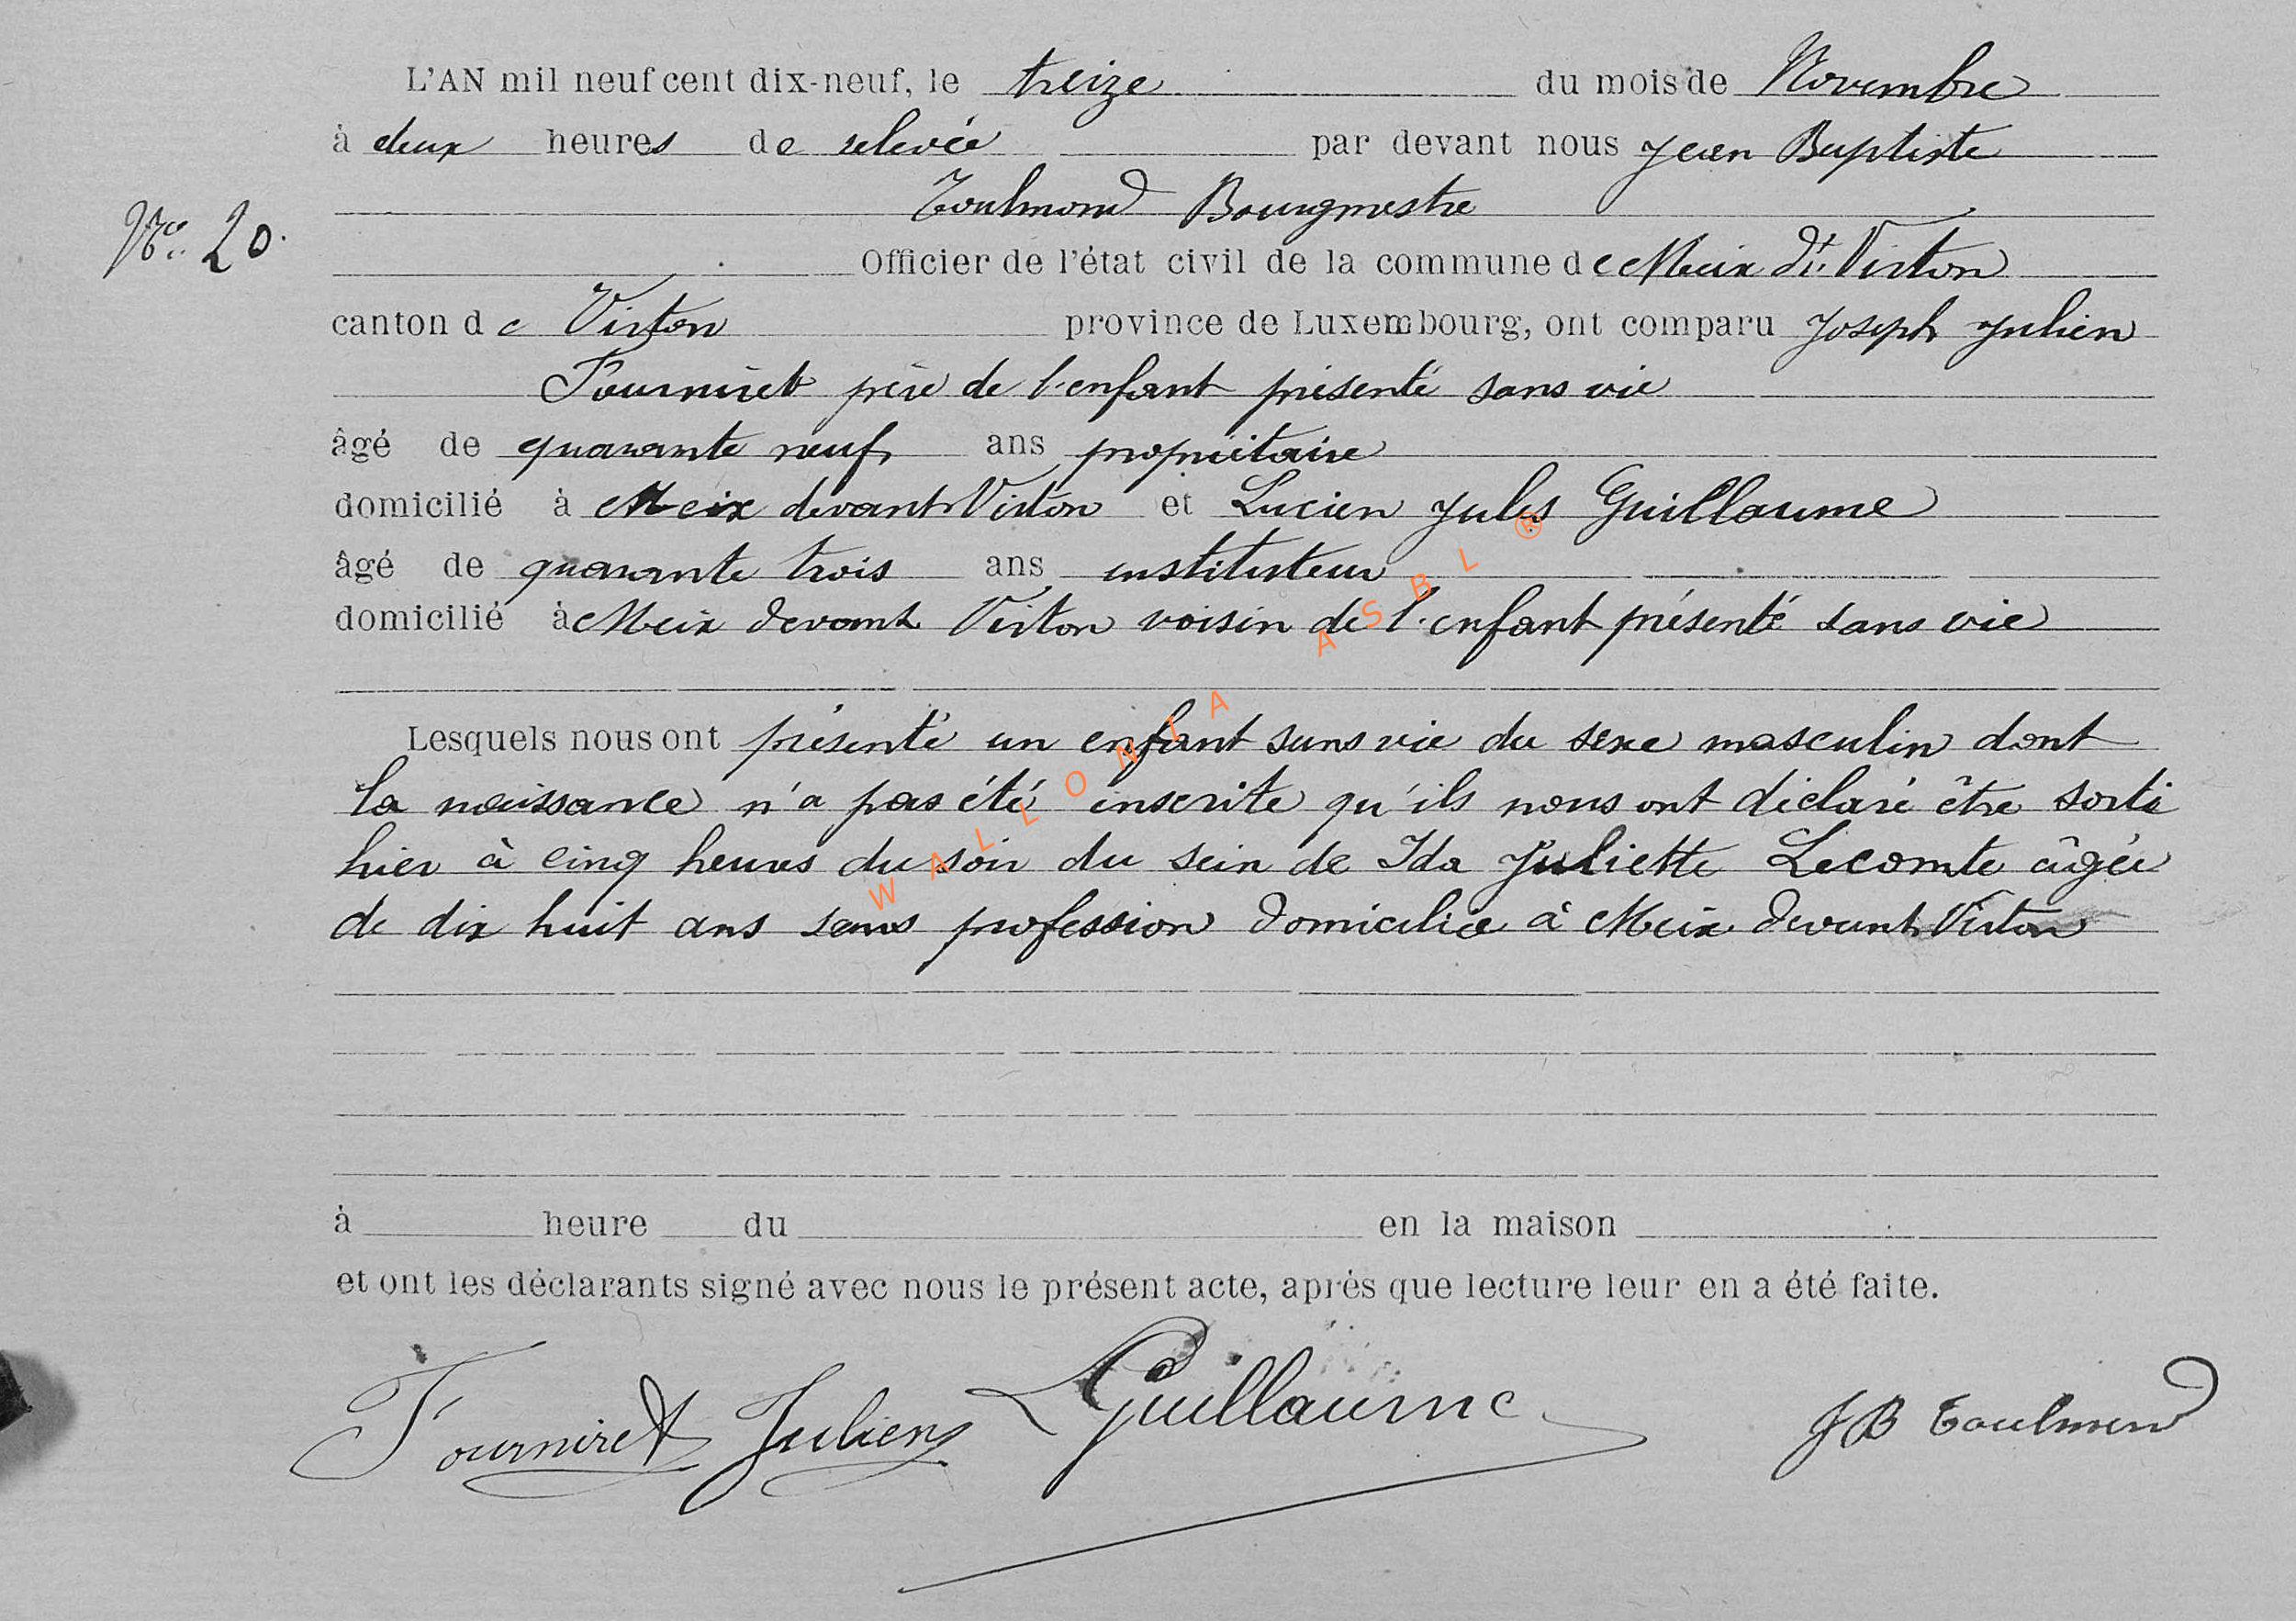 L'AN mil neuf cent dix-neuf, le treize du mois de Novembre
à deux heures de relevée par devant nous Jean Baptiste
Toulmond Bourgmestre
N° 20.
Officier de l'état civil de la commune de Meix dt. Virton
canton de Virton province de Luxembourg, ont comparu Joseph Julien
Fourniret père de l'enfant présenté sans vie
âgé de quarante neuf ans propriétaire
domicilié à Meix devant Virton et Lucien Jules Guillaume
âgé de quarante trois ans instituteur
domicilié à Meix devant Virton voisin de l'enfant présenté sans vie
Lesquels nous ont présenté un enfant sans vie du sexe masculin dont
la naissance n'a pas été inscrite qu'ils nous ont déclaré être sorti
hier à cinq heures du soir du sein de Ida Juliette Lecomte âgée
de dix huit ans sans profession domiciliée à Meix devant Virton
WALLONIA ASBL ®
à heure du en la maison
et ont les déclarants signé avec nous le présent acte, après que lecture leur en a été faite.
Fourniret Julien LGuillaume JB Toulmond